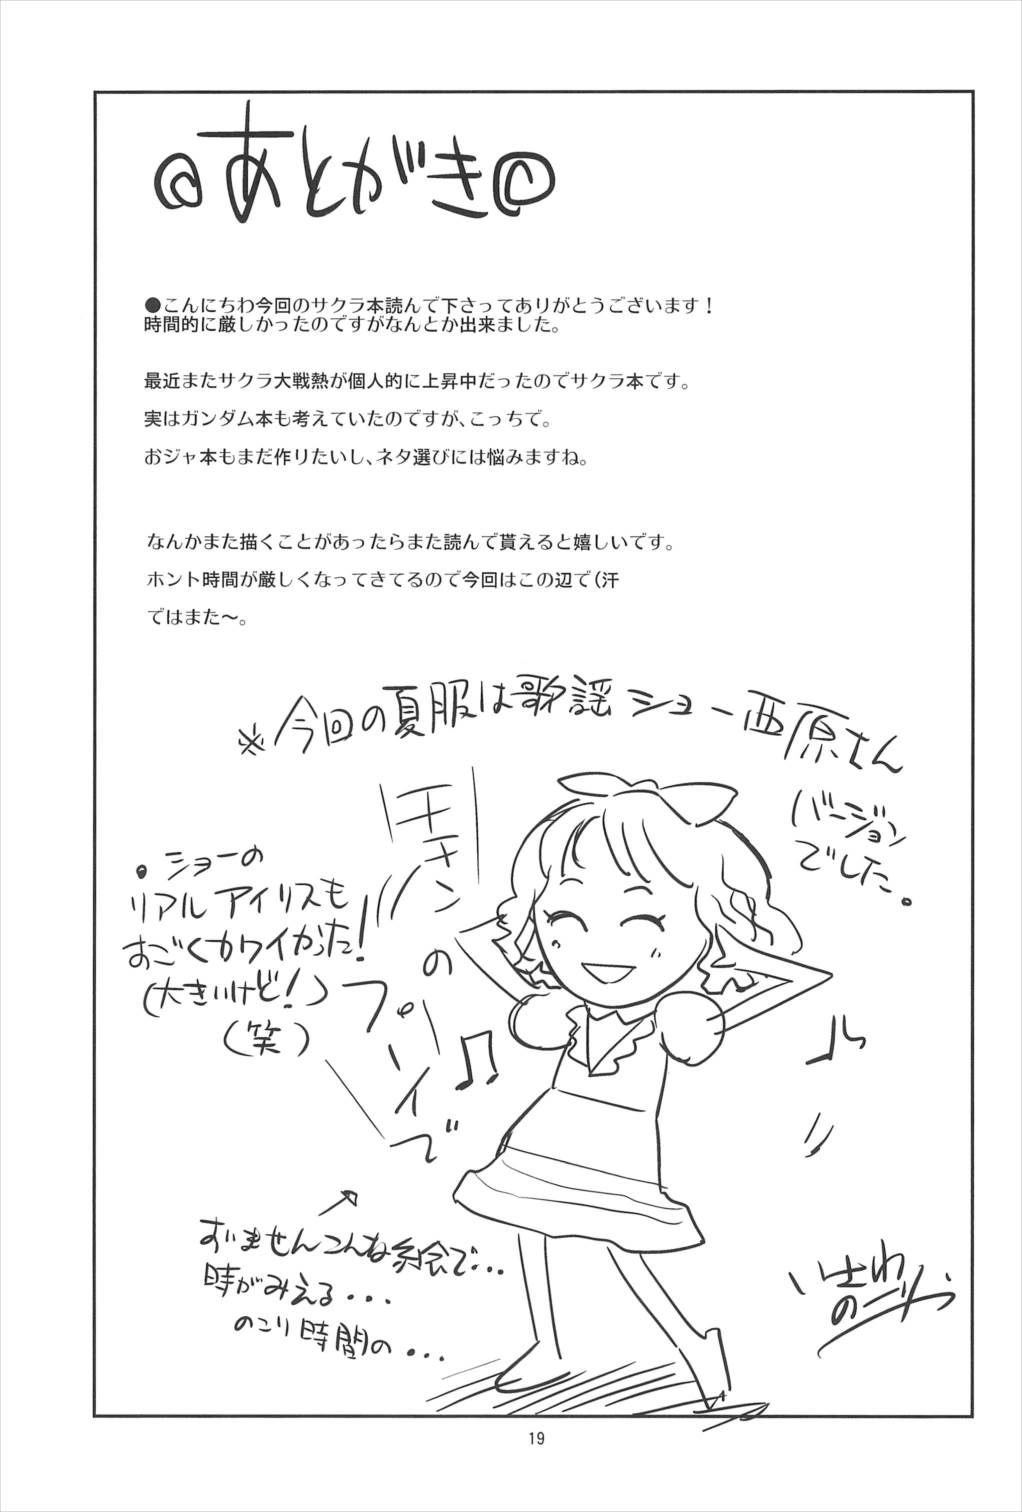 あとがき
●こんにちわ今回のサクラ本読んで下さってありがとうございます！
時間的に厳しかったのですがなんとか出来ました。
最近またサクラ大戦熱が個人的に上昇中だったのでサクラ本です。
実はガンダム本も考えていたのですが、こっちで。
おジャ本もまだ作りたいし、ネタ選びには悩みますね。
なんかまた描くことがあったらまた読んで貰えると嬉しいです。
ホント時間が厳しくなってきてるので今回はこの辺で（汗
ではまた～。
※今回の夏服は歌謡ショー西原さん
バージョン
でした。
・ショーの
リアルアイリスも
すごくカワイかった！
（大きいけど！）
（笑）
すいませんこんな絵で・・・
時がみえる・・・
のこり時間の・・・
いさわ
のーり
19